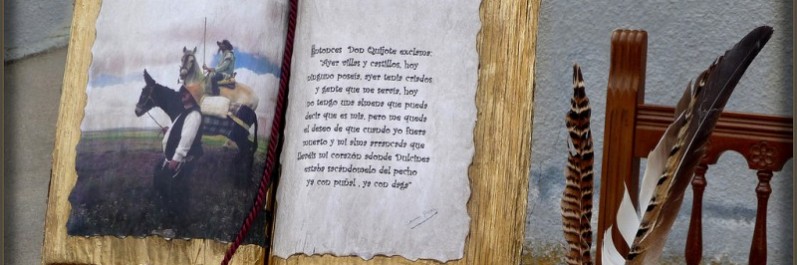 Entonces Don Quijote exclama:
"Ayer villas y castillos, hoy
ninguno poseía, ayer tenía criados
y gente que me servía, hoy
no tengo una almena que pueda
decir que es mía, pero me queda
el deseo de que cuando yo fuera
muerto y mi alma arrancada que
llevéis mi corazón adonde Dulcinea
estaba sacándomelo del pecho
ya con puñal , ya con daga"